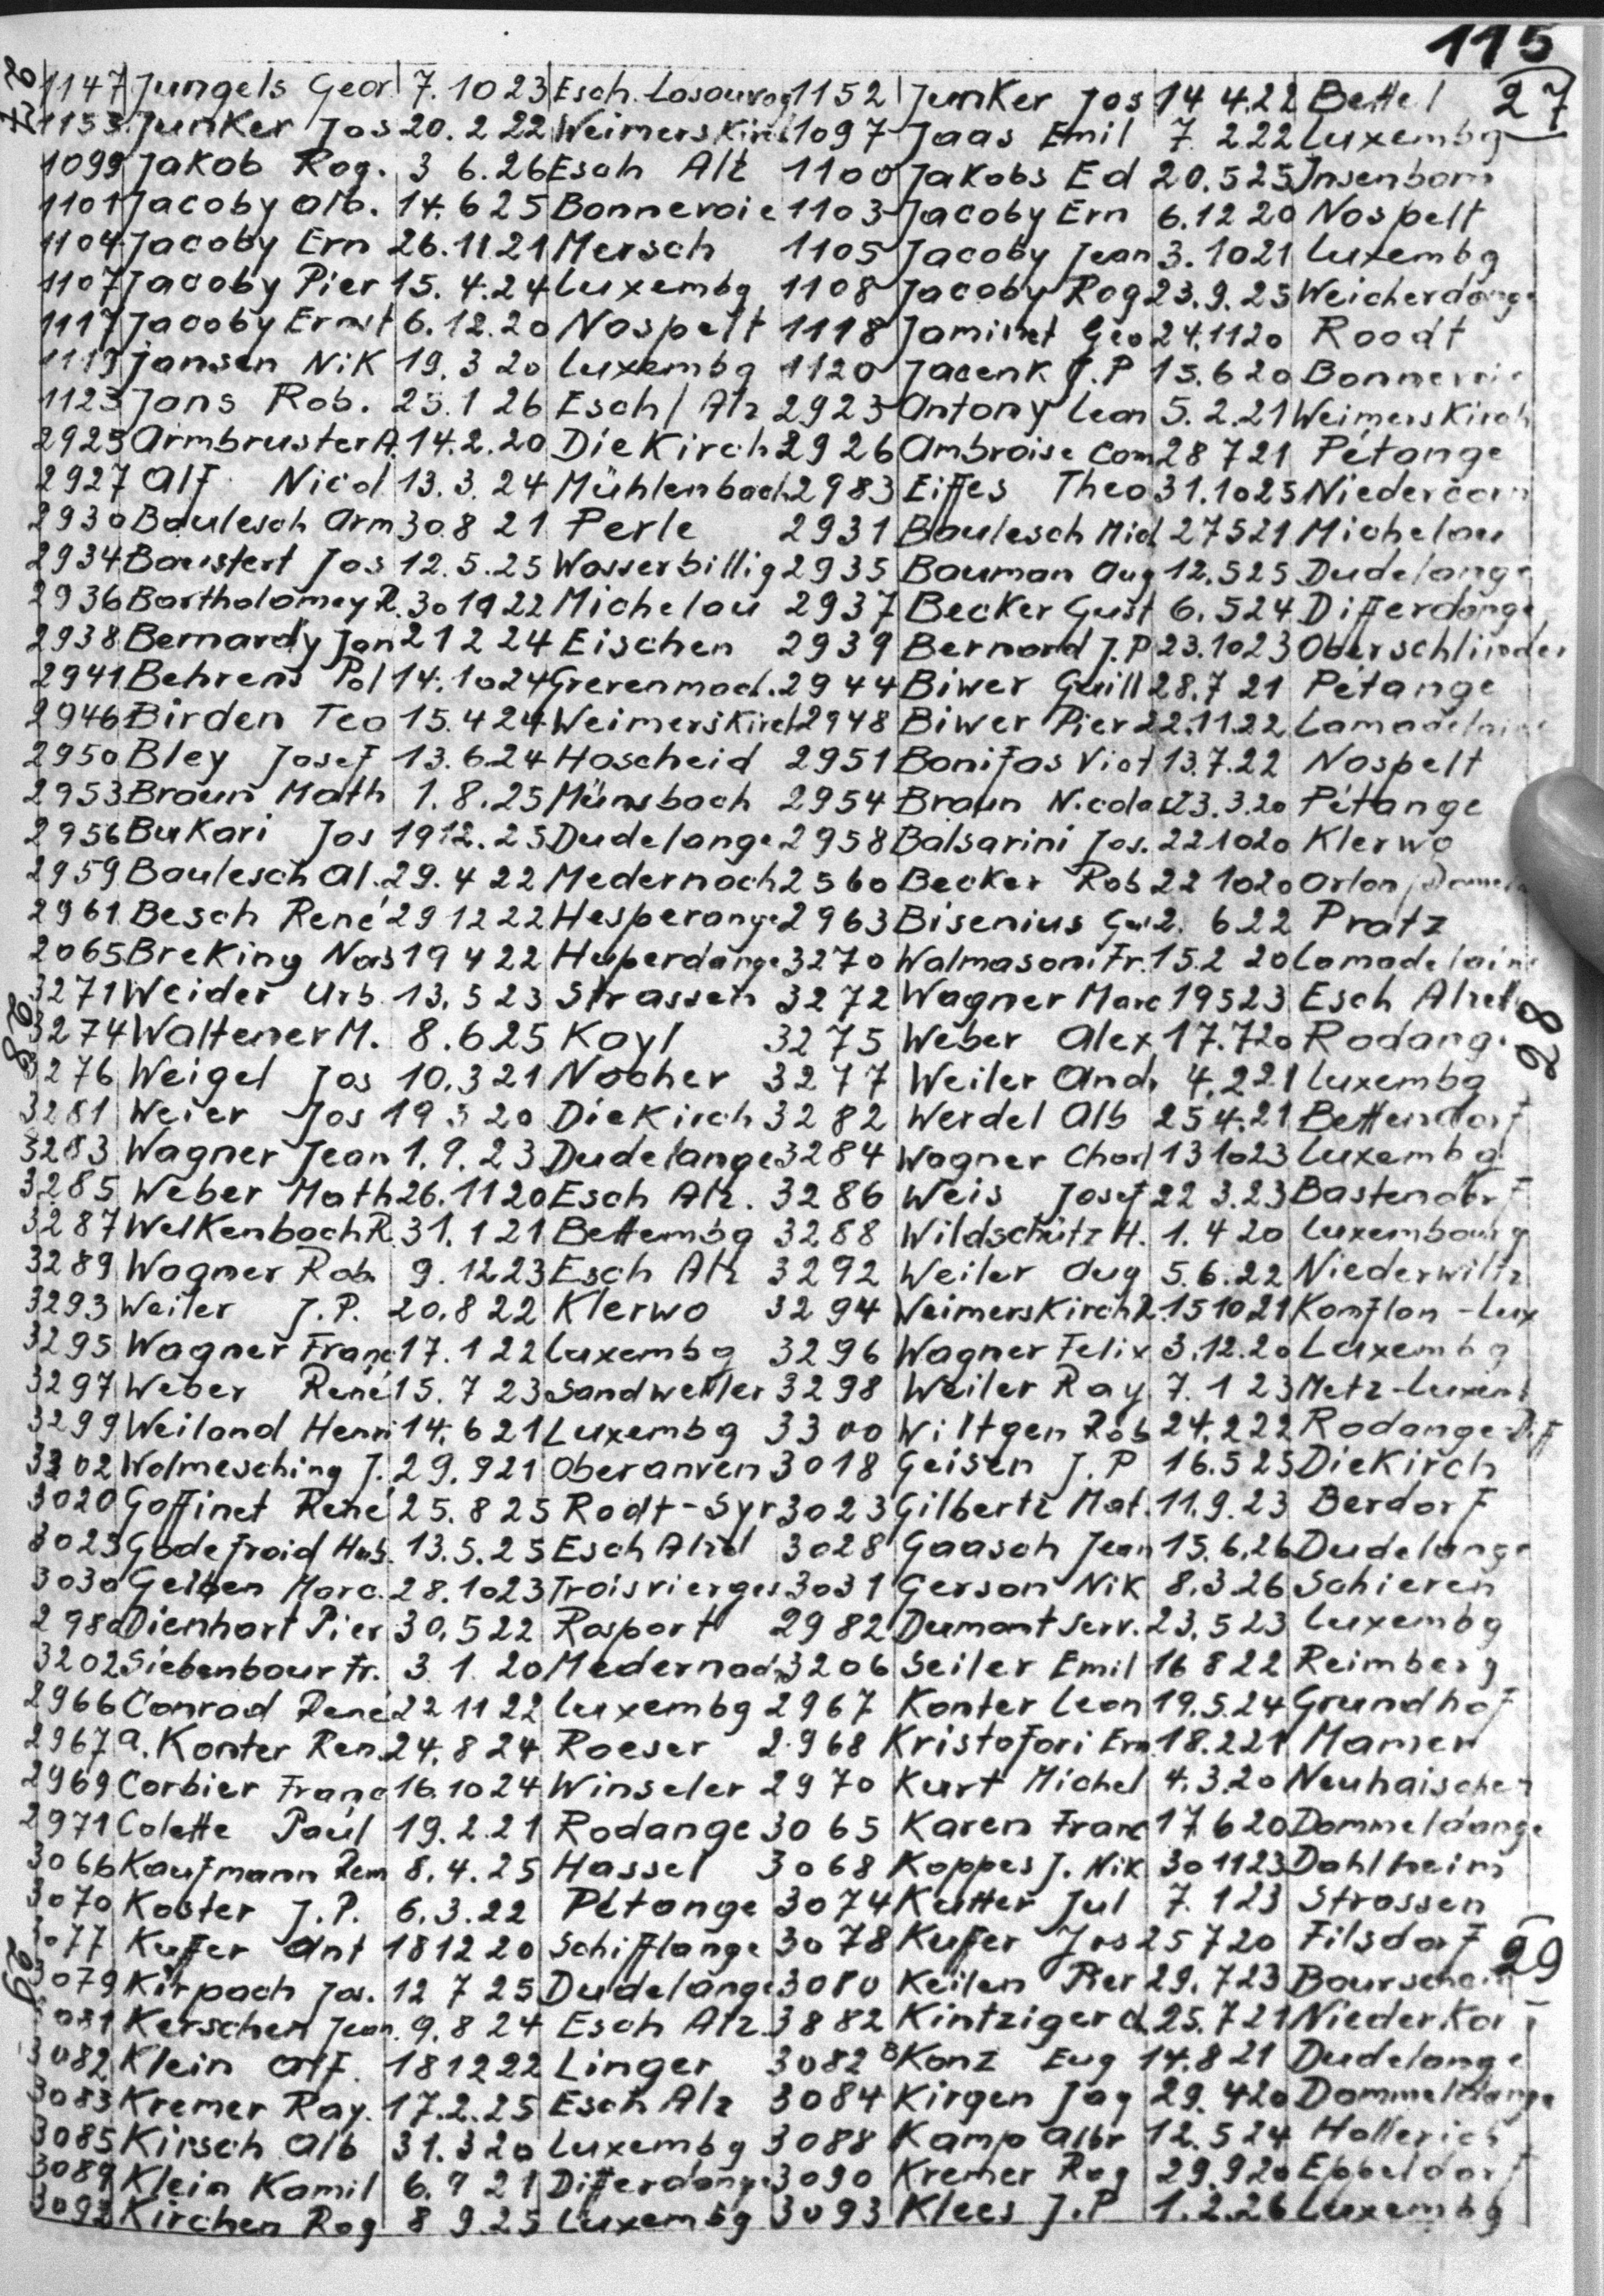 115
27
1147 Jungels Geor. 7.10 23 Esch. 1152 Junker Jos 14 4.22 Bettel 27
1153 Junker Jos 20. 2 22 Weimerskirch 1097 Jaas Emil 7. 2.22 Luxembg
1099 Jakob Rog. 3 6.26 Esch Alz 1100 Jakobs Ed 20.5 25 Insenborn
1101 Jacoby Alb. 14.6 25 Bonnevoie 1103 Jacoby Ern 6.12 20 Nospelt
1104 Jacoby Ern 26.11.21 Mersch 1105 Jacoby Jean 3.10 21 Luxembg
1107 Jacoby Pier 15.4.24 Luxembg 1108 Jacoby Rog 23.9.25 Weicherdange
1117 Jacoby Ernst 6.12.20 Nospelt 1118 Jaminet Geo 24.11 20 Roodt
1119 Jansen Nik 19.3 20 Luxembg 1120 Jacenk J.P 15.6 20 Bonnevoie
1123 Jans Rob. 25.1 26 Esch/Alz 2923 Antony Leon 5.2.21 Weimerskirch
2925 Armbruster A. 14.2.20 Diekirch 2926 Ambroise Com 28 7 21 Pétange
2927 Alf. Nicol 13.3.24 Mühlenbach 2983 Eiffes Theo 31.10 25 Niedercorn
2930 Baulesch Arm 30.8 21 Perle 2931 Baulesch Mid 27 5 21 Michelau
2934 Baustert Jos 12.5.25 Wasserbillig 2935 Bauman Aug 12.5 25 Dudelange
2936 Bartholomey R. 30 10 22 Michelau 2937 Becker Gust 6.5 24 Differdange
2938 Bernardy Jon 21 2 24 Eischen 2939 Bernard J.P 23.10 23 Oberschlinder
2941 Behrens Pol 14.10 24 Grevenmach. 2944 Biwer Guill 28.7 21 Pétange
2946 Birden Teo 15.4 24 Weimerskirch 2948 Biwer Pier 22.11.22 Lamadelaine
2950 Bley Josef 13.6.24 Hoscheid 2951 Bonifas Vict 13.7.22 Nospelt
2953 Braun Math 1.8.25 Münsbach 2954 Braun Nicolas 23.3.20 Pétange
2956 Bukari Jos 19 12.25 Dudelange 2958 Balsarini Jos. 22 10 20 Klerwo
2959 Baulesch Al. 29.4 22 Medernach 2560 Becker Rob 22 10 20 Arlon
2961 Besch René 29 12 22 Hesperange 2963 Bisenius Gui 2. 6 22 Pratz
2065 Breking Nors 19 4 22 Huperdange 3270 Walmasoni Fr. 15.2 20 Lamadelaine
28 3271 Weider Urb. 13.5 23 Strassen 3272 Wagner Marc 19 5 23 Esch Alzet 28
3274 Waltener M. 8.6 25 Kayl 3275 Weber Alex 17.7 20 Rodang.
3276 Weigel Jos 10.3 21 Nocher 3277 Weiler And. 4.2 21 Luxembg
3281 Weier Jos 19 3 20 Diekirch 3282 Werdel Alb 25 4.21 Bettendorf
3283 Wagner Jean 1.9.23 Dudelange 3284 Wagner Charl 13 10 23 Luxembg
3285 Weber Math 26.11 20 Esch Alz. 3286 Weis Josef 22 3.23 Bastendorf
3287 Welkenbach R. 31.1 21 Bettembg 3288 Wildschütz H. 1.4 20 Luxembourg
3289 Wagner Rob. 9.12 23 Esch Alz 3292 Weiler Aug 5.6.22 Niederwiltz
3293 Weiler J.P. 20.8 22 Klerwo 3294 Weimerskirch R. 15 10 21 Konflon - Lux
3295 Wagner Franç 17.1 22 Luxembg 3296 Wagner Felix 3.12.20 Luxembg
3297 Weber René 15.7 23 Sandweiler 3298 Weiler Ray 7.1 23 Metz-Luxemb
3299 Weiland Henri 14.6 21 Luxembg 3300 Wiltgen Rob 24.2 22 Rodange Diff
3302 Walmesching J. 29.9 21 Oberanven 3018 Geisen J.P 16.5 25 Diekirch
3020 Goffinet René 25.8 25 Rodt-Syr 3023 Gilbertz Mat. 11.9.23 Berdorf
3023 Godefroid Hub. 13.5.25 Esch Alzet 3028 Gaasch Jean 15.6.26 Dudelange
3030 Gelben Marc. 28.10 23 Troisvierges 3031 Gerson Nik 8.3.26 Schieren
2980 Dienhart Pier 30.5 22 Rosport 2982 Dumont Serv. 23.5 23 Luxembg
3202 Siebenbour Fr. 3.1.20 Medernach 3206 Seiler Emil 16 8 22 Reimberg
2966 Conrad René 22 11 22 Luxembg 2967 Konter Leon 19.5.24 Grundhof
2967 a. Konter Ren. 24.8 24 Roeser 2968 Kristofori Ern. 18.2 21 Mamer
2969 Corbier Franç 16.10 24 Winseler 2970 Kurt Michel 4.3.20 Neuhaischen
2971 Colette Paul 19.2.21 Rodange 3065 Karen Franc 17 6 20 Dommeldange
3066 Kaufmann Rem 8.4.25 Hassel 3068 Koppes J. Nik 30 11 23 Dahlheim
3070 Koster J.P. 6.3.22 Pétange 3074 Kutter Jul 7.1 23 Strassen
3077 Kuffer Ant 18 12 20 Schifflange 3078 Kuffer Jos 25 7 20 Filsdorf 29
29 3079 Kirpach Jos. 12 7 25 Dudelange 3080 Keilen Pier 29.7 23 Bourscheid
3081 Kerschen Jean. 9.8 24 Esch Alz. 3882 Kintziger A. 25.7 21 Niederkor
3082 Klein Alf. 18 12 22 Linger 3082 B Konz Eug 14.8 21 Dudelange
3083 Kremer Ray. 17.2.25 Esch Alz 3084 Kirgen Jag 29.4 20 Dommeldange
3085 Kirsch Alb 31.3 20 Luxembg 3088 Kamp Albr 12.5 24 Hollerich
3089 Klein Kamil 6.9 21 Differdange 3090 Kremer Rog 29.9 20 Eppeldorf
3092 Kirchen Rog 8 9.25 Luxembg 3093 Klees J.P 1.2.26 Luxembg